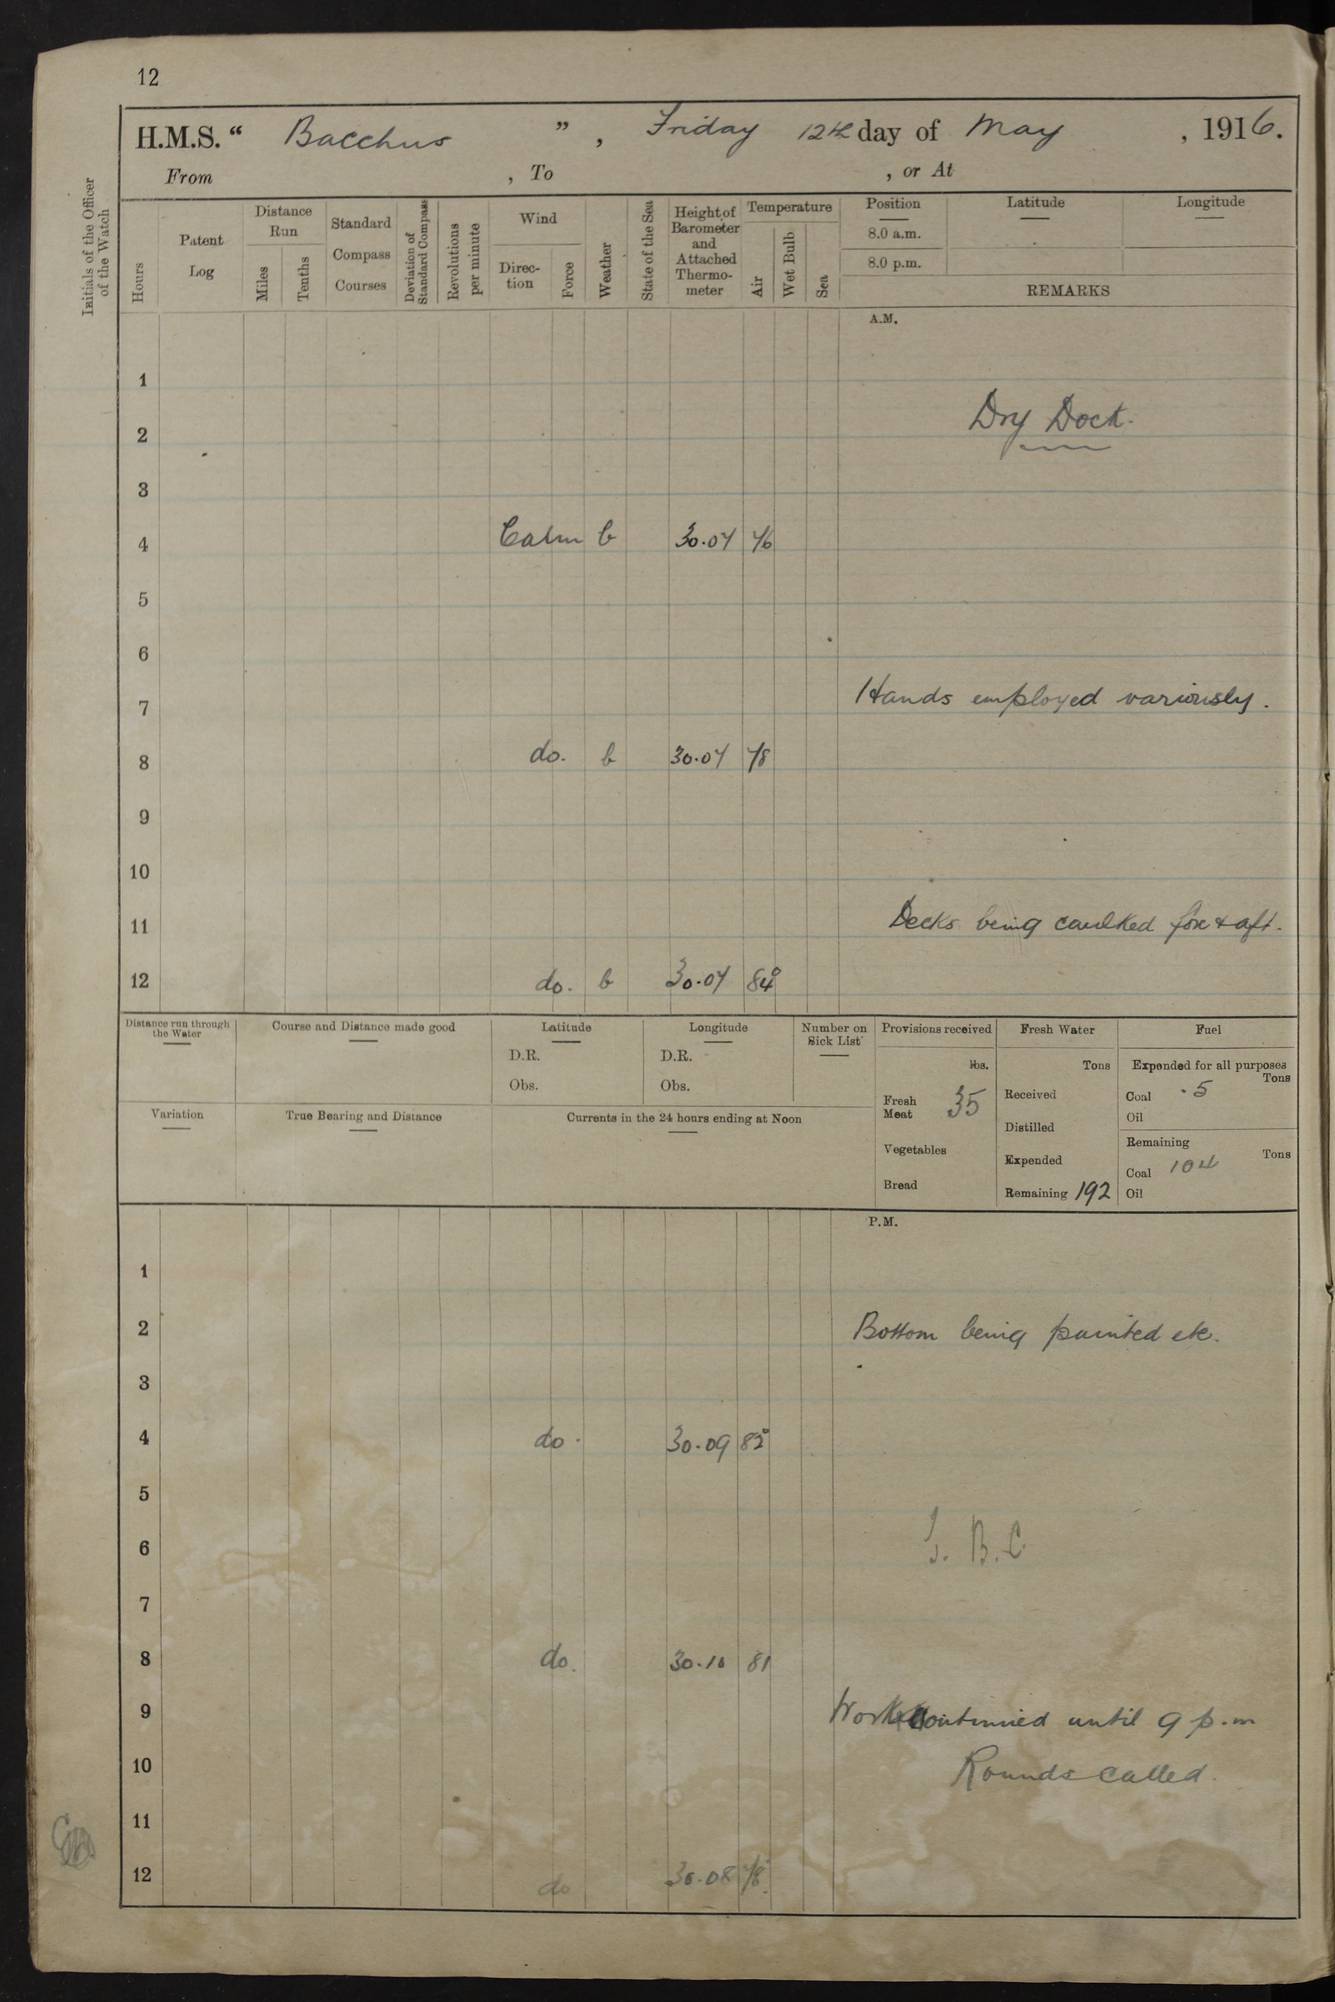 12
H.M.S. “ Bacchus ”, Friday 12th day of May, 1916.
From , To , or At
Initials of the Officer of the Watch
Hours
Patent Log
Distance Run
Miles
Tenths
Standard Compass Courses
Deviation of Standard Compass
Revolutions per minute
Wind
Direction
Force
Weather
State of the Sea
Height of Barometer and Attached Thermometer
Temperature
Air
Wet Bulb
Sea
Position
8.0 a.m.
8.0 p.m.
Latitude
Longitude
REMARKS
A.M.
1
2 Dry Dock.
3
4 Calm b 30.07 76
5
6
7 Hands employed variously.
8 do. b 30.07 78
9
10
11 Decks being caulked fore & aft.
12 do. b 30.07 84°
Distance run through the Water
Course and Distance made good
Latitude
D.R.
Obs.
Longitude
D.R.
Obs.
Number on Sick List
Provisions received
lbs.
Fresh Meat 35
Vegetables
Bread
Fresh Water
Tons
Received
Distilled
Expended
Remaining 192
Fuel
Expended for all purposes
Tons
Coal .5
Oil
Remaining
Tons
Coal 104
Oil
Variation
True Bearing and Distance
Currents in the 24 hours ending at Noon
P.M.
1
2 Bottom being painted etc.
3
4 do. 30.09 82°
5
6 B.C
7
8 do. 30.10 81
9 Work continued until 9 p.m
10 Rounds called.
11
12 do 30.08 78